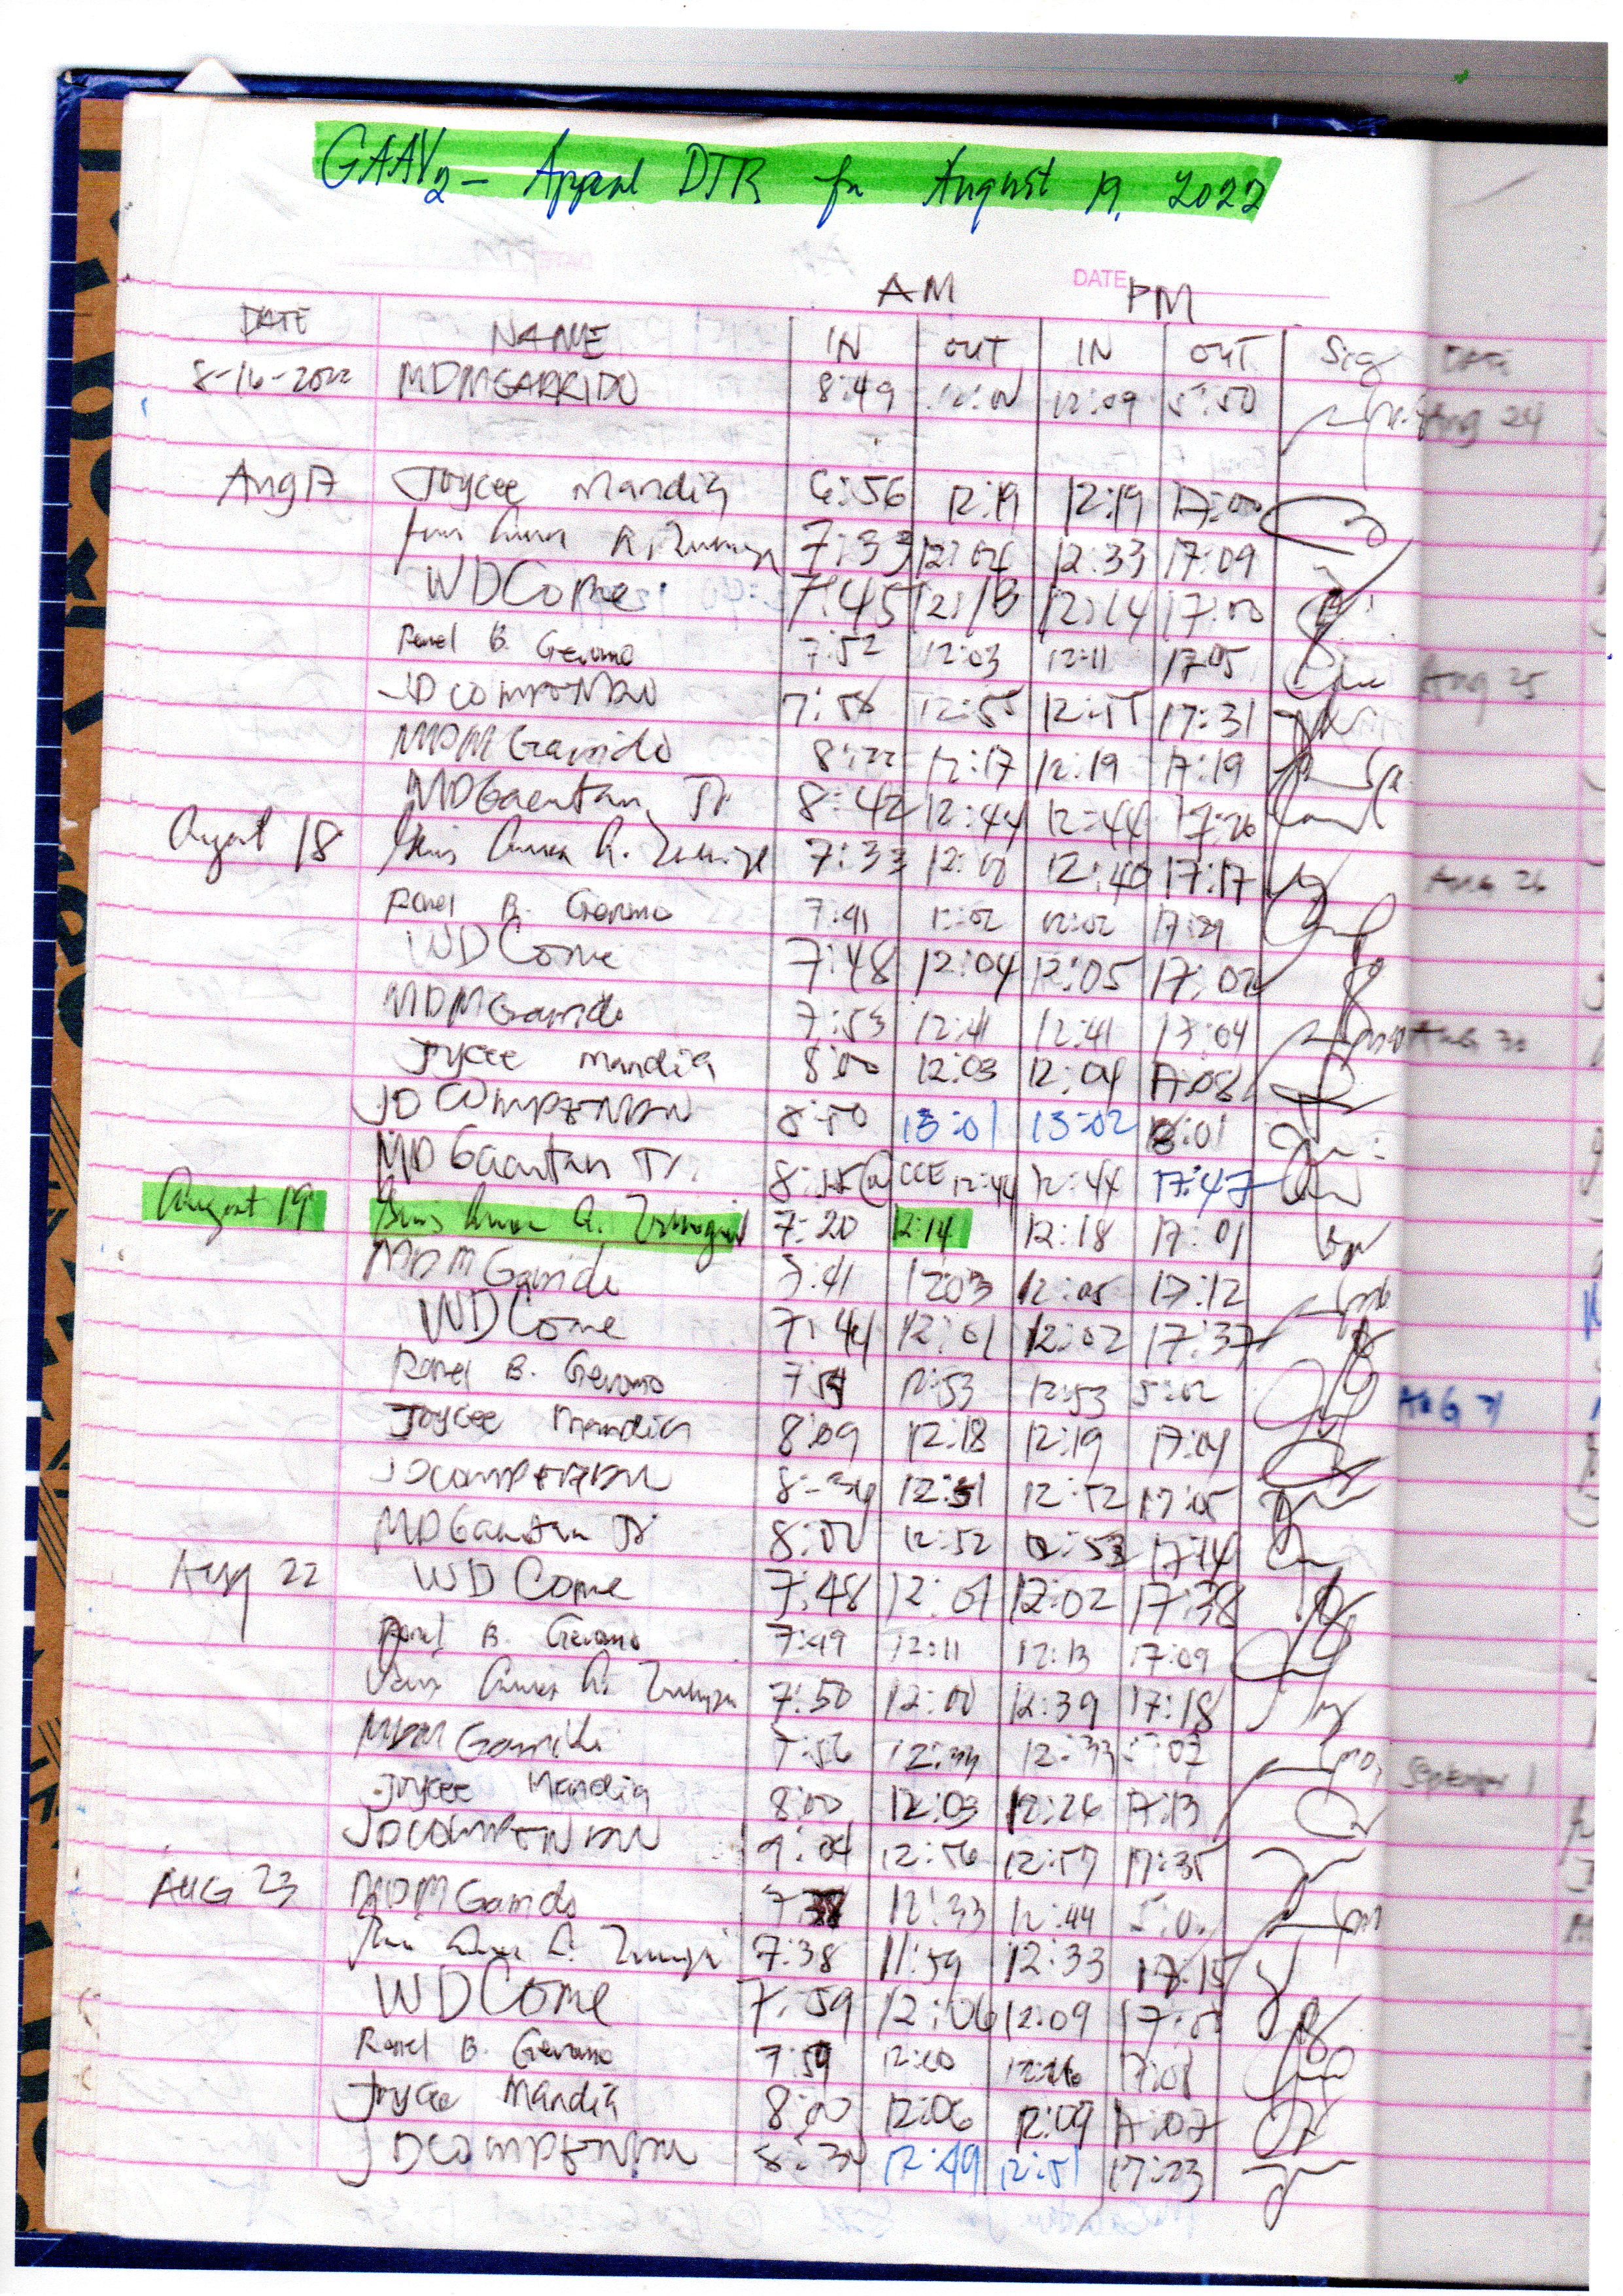 GAAV2 - Appeal DTR for August 19, 2022
DATE
AM PM
DATE NAME IN OUT IN OUT Sig
8-16-2022 MDMGARRIDO 8:49 12:09 5:50
Aug 17 Joycee Mandia 6:56 12:19 12:19 17:00
7:33 12:06 12:33 17:09
WDCome 7:45 12:13 12:14 17:00
Ronel B. Geromo 7:52 12:03 12:11 17:05
JDCOMPENDIO 7:58 12:55 12:55 17:31
MDMGarrido 8:22 12:17 12:19 17:19
MDGaentan Jr 8:42 12:44 12:44 17:26
August 18 7:33 12:00 12:40 17:17
Ronel B. Geromo 7:41 12:02 12:02 17:29
WDCome 7:48 12:04 12:05 17:02
MDMGarrido 7:53 12:41 12:41 17:04
Joycee Mandia 8:00 12:03 12:04 17:08
JDCOMPENDIO 8:50 13:01 13:02 18:01
MDGaentan Jr. 8:15 @ CCE 12:44 12:44 17:47
August 19 7:20 12:14 12:18 17:01
MDMGarrido 7:41 12:03 12:05 17:12
WDCome 7:44 12:01 12:02 17:37
Ronel B. Geromo 7:54 12:53 12:53 5:02
Joycee Mandia 8:09 12:18 12:19 17:04
JDCOMPENDIO 8:34 12:51 12:52 17:05
MDGaentan Jr 8:00 12:52 12:53 17:14
Aug 22 WDCome 7:48 12:01 12:02 17:38
Ronel B. Geromo 7:49 12:11 12:13 17:09
7:50 12:00 12:39 17:18
MDMGarrido 7:56 12:33 12:33 5:02
Joycee Mandia 8:00 12:03 12:26 17:13
JDCOMPENDIO 9:04 12:56 12:57 17:35
AUG 23 MDMGarrido 12:33 12:44
7:38 11:59 12:33 17:15
WDCome 7:59 12:06 12:09
Ronel B. Geromo 7:59 12:20 12:26 17:08
Joycee Mandia 8:00 12:06 12:09 17:07
JDCOMPENDIO 8:34 12:49 12:51 17:23
DATE
Aug 24
Aug 25
Aug 26
Aug 30
AUG 31
September 1